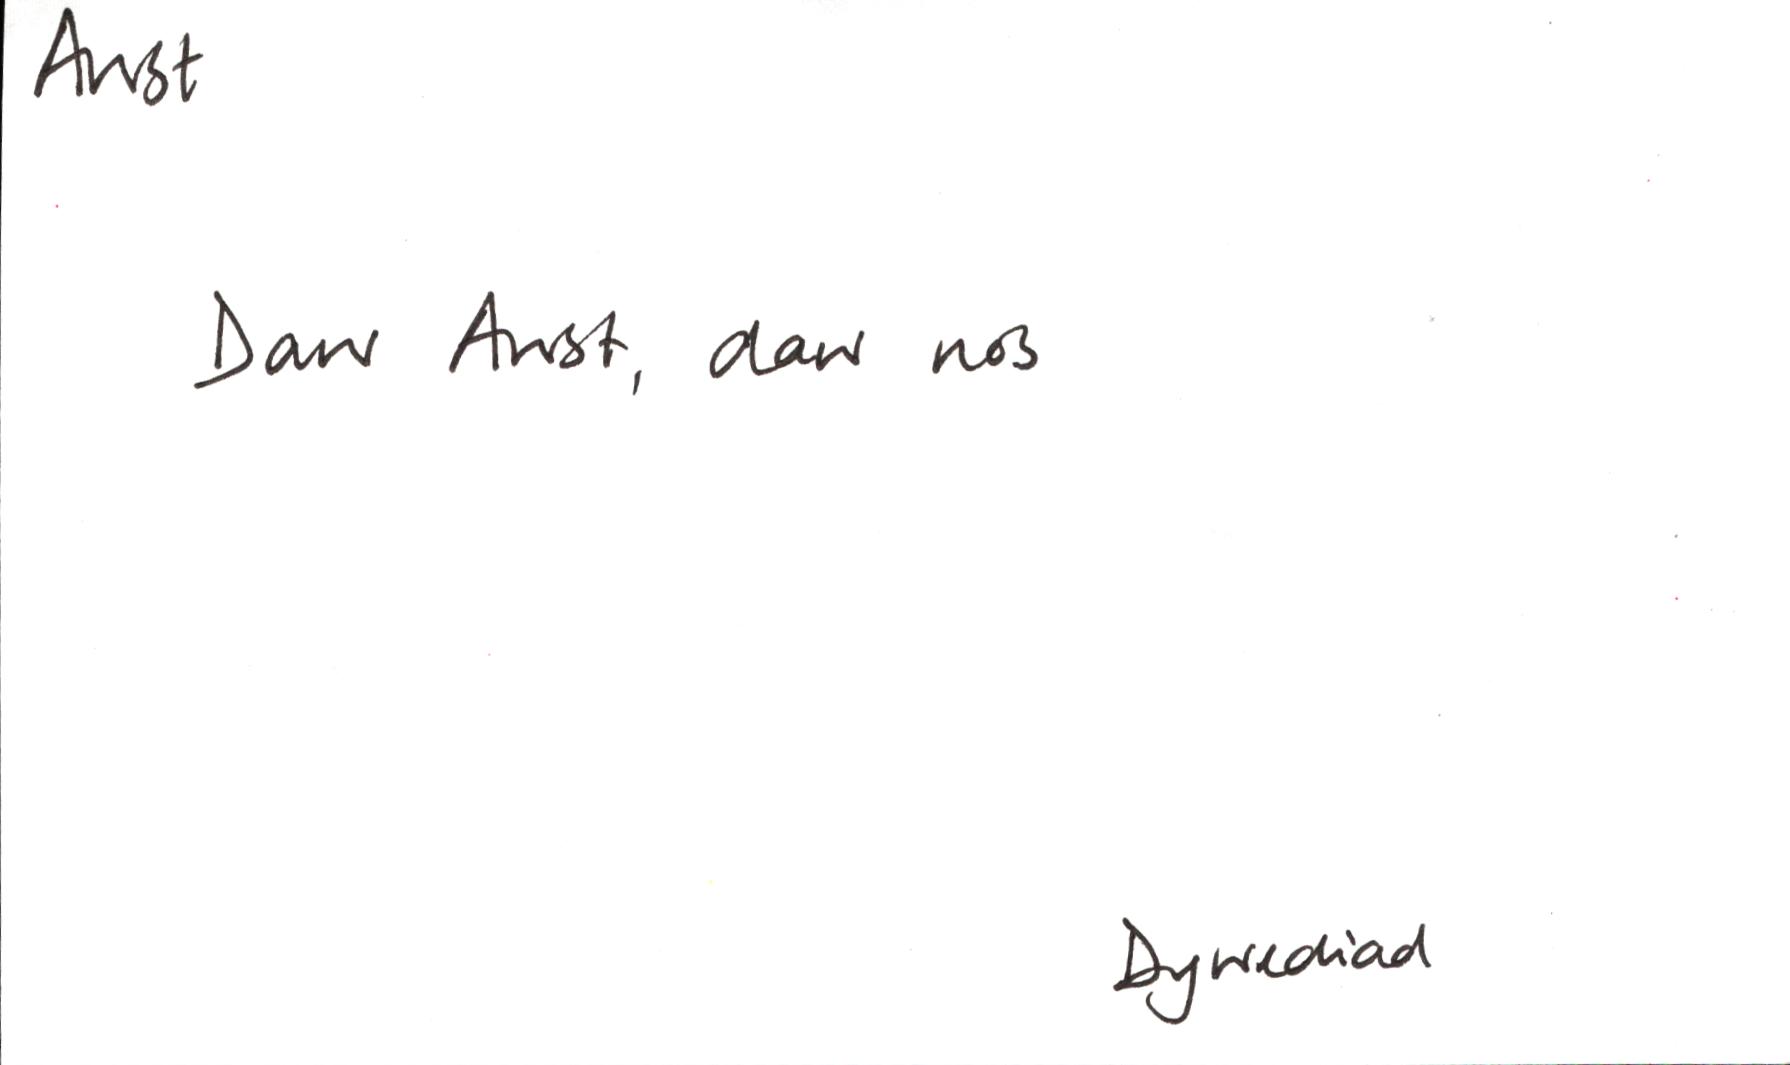 Awst
Daw Awst, daw nos
Dywediad